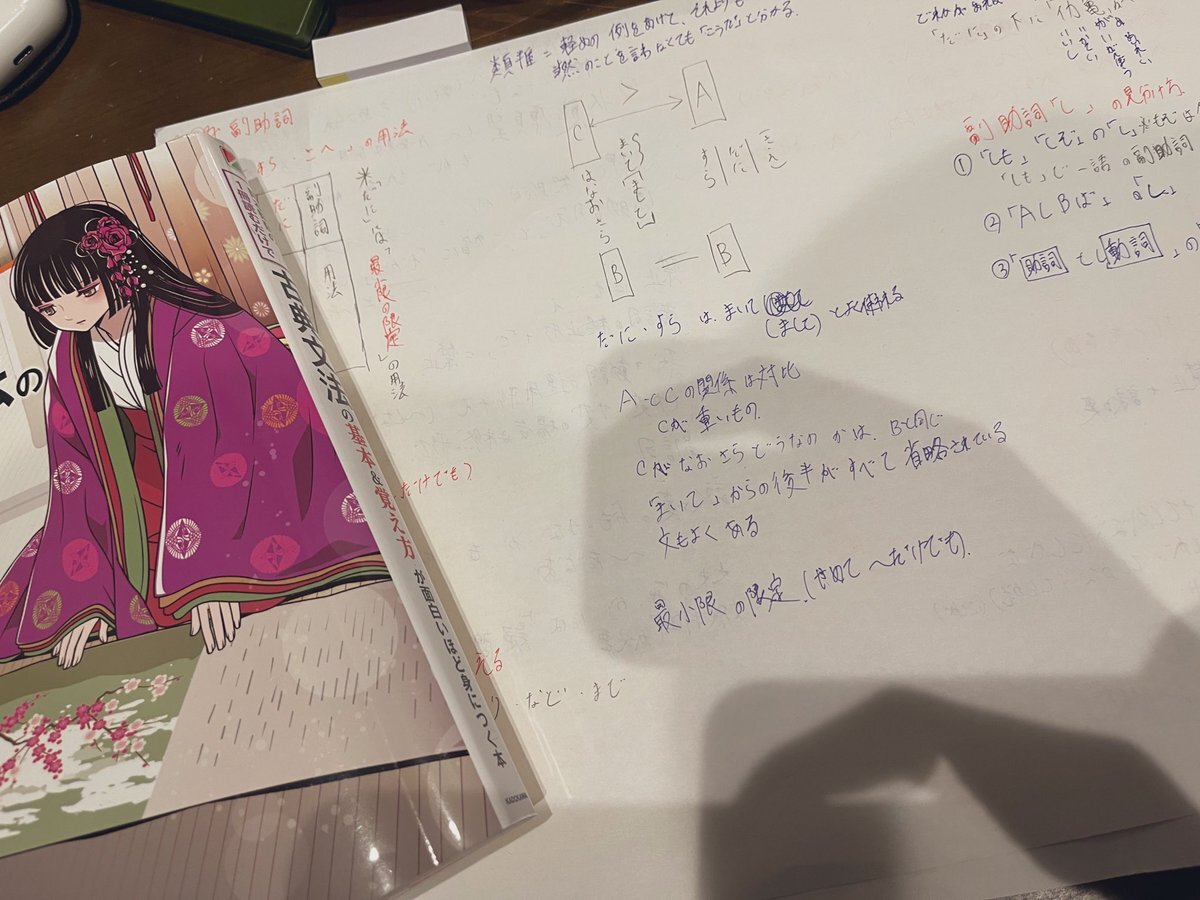 類推=軽めの例をあげて、それよりも
当然のことを言わなくても「こうだ」と分かる。
副助詞
すら・さへ」の用法
副助詞
用法
※「だに」は、最小限の限定」の用法
C > A
すら
だに
さへ
まいて
まして
はなおさら
B = B
だに・すら は、まいて
(まして) と共に使われる
A・Cの関係は対比
Cが重いもの
Cがなおさらどうなのかは、Bと同じ
「まいて」からの後半がすべて省略されている
文もよくある
最小限の限定 (せめて〜だけでも)
だけでも)
える
・など・まで
「だに」の下に「仂
副助詞「し」の見分け方
①「しも」「しぞ」の「し」
「しも」で一語の副助詞
②「AしBば」の「し」
③「助詞 てし 動詞」の
1冊読むだけで
古典文法の基本&覚え方が面白いほど身につく本
KADOKAWA
の